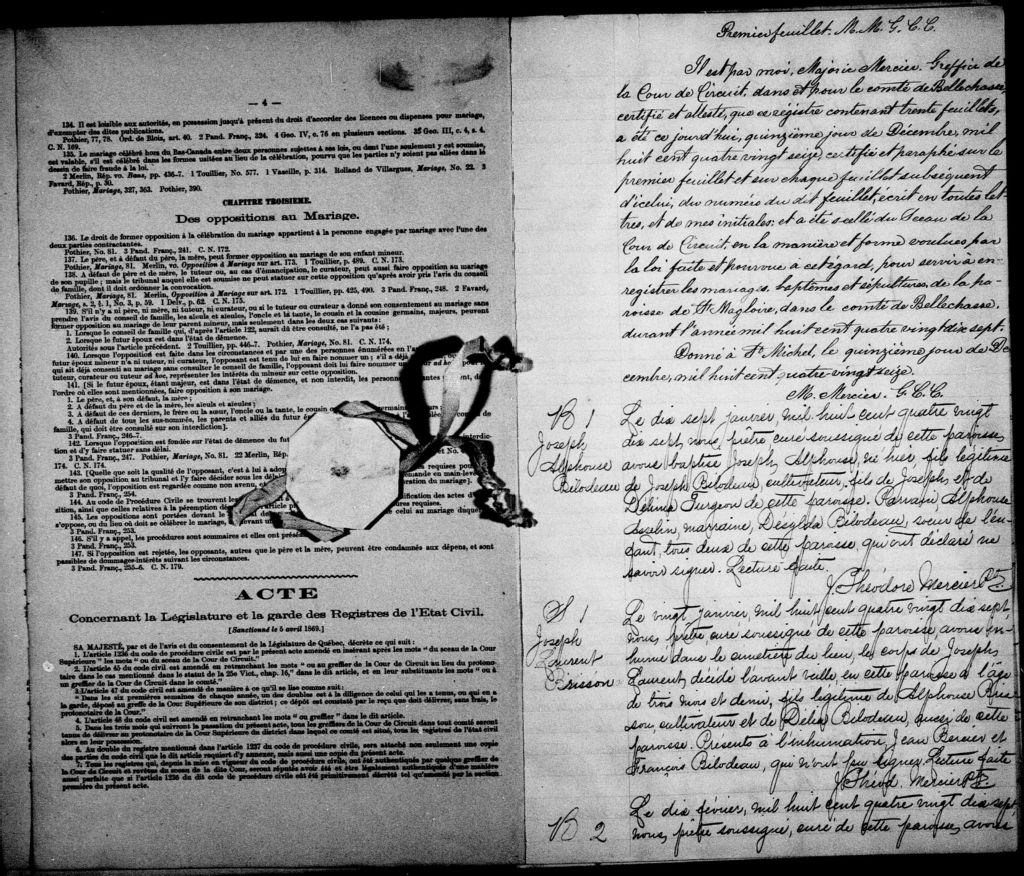 — 4 —
134. Il est loisible aux autorités, en possession jusqu'à présent du droit d'accorder des licences ou dispenses pour mariage,
d'exempter des dites publications.
Pothier, 77, 78. Ord. de Blois, art. 40. 2 Pand. Franç., 324. 4 Geo. IV, c. 76 en plusieurs sections. 35 Geo. III, c. 4, s. 4.
C. N. 169.
135. Le mariage célébré hors du Bas-Canada entre deux personnes sujettes à ses lois, ou dont l'une seulement y est soumise,
est valable, s'il est célébré dans les formes usitées au lieu de la célébration, pourvu que les parties n'y soient pas allées dans le
dessein de faire fraude à la loi.
2 Merlin, Rép. vo. Bans, pp. 436-7. 1 Toullier, No. 577. 1 Vazeille, p. 314. Rolland de Villargues, Mariage, No. 22. 3
Favard, Rép., p. 50.
Pothier, Mariage, 327, 363. Pothier, 390.
CHAPITRE TROISIEME.
Des oppositions au Mariage.
136. Le droit de former opposition à la célébration du mariage appartient à la personne engagée par mariage avec l'une des
deux parties contractantes.
Pothier, No. 81. 3 Pand. Franç., 241. C. N. 172.
137. Le père, et à défaut du père, la mère, peut former opposition au mariage de son enfant mineur.
Pothier, Mariage, 81. Merlin, vo. Opposition à Mariage sur art. 173. 1 Touillier, p. 489. C. N. 173.
138. A défaut de père et de mère, le tuteur ou, au cas d'émancipation, le curateur, peut aussi faire opposition au mariage
de son pupille; mais le tribunal auquel elle est soumise ne peut statuer sur cette opposition qu'après avoir pris l'avis du conseil
de famille, dont il doit ordonner la convocation.
Pothier, Mariage, 81. Merlin, Opposition à Mariage sur art. 172. 1 Touillier, pp. 425, 490. 3 Pand. Franç., 248. 2 Favard,
Mariage, s. 2, § 1, No. 3, p. 59. 1 Delv., p. 62. C. N. 175.
139. S'il n'y a ni père, ni mère, ni tuteur, ni curateur, ou si le tuteur ou curateur a donné son consentement au mariage sans
prendre l'avis du conseil de famille, les aïeuls et aïeules, l'oncle et la tante, le cousin et la cousine germains, majeurs, peuvent
former opposition au mariage de leur parent mineur, mais seulement dans les deux cas suivants:
1. Lorsque le conseil de famille qui, d'après l'article 122, aurait dû être consulté, ne l'a pas été;
2. Lorsque le futur époux est dans l'état de démence.
Autorités sous l'article précédent. 2 Touillier, pp. 446-7. Pothier, Mariage, 81. C. N. 174.
140. Lorsque l'opposition est faite dans les circonstances et par une des personnes énumérées en l'
futur époux mineur n'a ni tuteur, ni curateur, l'opposant est tenu de lui en faire nommer un; s'il a déjà
qui ait déjà consenti au mariage sans consulter le conseil de famille, l'opposant doit lui faire nommer un tuteur ad hoc, pour
tuteur, curateur ou tuteur ad hoc, représenter les intérêts du mineur sur cette opposition.
141. [Si le futur époux, étant majeur, est dans l'état de démence, et non interdit, les personnes
l'ordre où elles sont mentionnées, faire opposition à son mariage.
1. Le père, et, à son défaut, la mère;
2. A défaut du père et de la mère, les aïeuls et aïeules;
3. A défaut de ces derniers, le frère ou la sœur, l'oncle ou la tante, le cousin
4. A défaut de tous les sus-nommés, les parents et alliés du futur
famille, qui doit être consulté sur son interdiction].
3 Pand. Franç., 246-7.
142. Lorsque l'opposition est fondée sur l'état de démence du fut
tion et d'y faire statuer sans délai.
3 Pand. Franç., 247. Pothier, Mariage, No. 81. 22 Merlin,
174. C. N. 174.
143. [Quelle que soit la qualité de l'opposant, c'est à lui à adop
mettre son opposition au tribunal et l'y faire décider sous les déla
défaut de quoi, l'opposition est regardée comme non avenue
3 Pand. Franç., 254.
144. Au code de Procédure Civile se trouvent les
sition, ainsi que celles relatives à la péremption de
145. Les oppositions sont portées devant le
s'oppose, ou du lieu où doit se célébrer le mariage,
3 Pand. Franç., 253.
146. S'il y a appel, les procédures sont sommaires et elles ont
3 Pand. Franç., 253.
147. Si l'opposition est rejetée, les opposants, autres que le père et la mère, peuvent être condamnés aux dépens, et sont
passibles de dommages-intérêts suivant les circonstances.
3 Pand. Franç., 255-6. C. N. 179.
ACTE
Concernant la Législature et la garde des Registres de l'Etat Civil.
[Sanctionné le 5 avril 1869.]
SA MAJESTÉ, par et de l'avis et du consentement de la Législature de Québec, décrète ce qui suit:
1. L'article 1236 du code de procédure civile est par le présent acte amendé en insérant après les mots "du sceau de la Cour
Supérieure" les mots "ou du sceau de la Cour de Circuit."
2. L'article 45 du code civil est amendé en retranchant les mots "ou au greffier de la Cour de Circuit au lieu du protono-
taire dans le cas mentionné dans le statut de la 25e Vict., chap. 16," dans le dit article, et en leur substituant les mots "ou à
un greffier de la Cour de Circuit dans le comté."
3. L'article 47 du code civil est amendé de manière à ce qu'il se lise comme suit:
"Dans les six premières semaines de chaque année, un des doubles est à la diligence de celui qui les a tenus, ou qui en a
la garde, déposé au greffe de la Cour Supérieure de son district; ce dépôt est constaté par le reçu que doit délivrer, sans frais, le
protonotaire de la Cour."
4. L'article 48 du code civil est amendé en retranchant les mots "ou greffier" dans le dit article.
5. Dans les trois mois qui suivront la passation du présent acte, tous les greffiers de la Cour de Circuit dans tout comté seront
tenus de délivrer au protonotaire de la Cour Supérieure du district dans lequel ce comté est situé, tous les registres de l'état civil
alors en leur possession.
6. Au double du registre mentionné dans l'article 1237 du code de procédure civile, sera attaché non seulement une copie
des parties du code civil que le dit article requiert d'y annexer, mais aussi une copie du présent acte.
7. Tous les registres qui, depuis la mise en vigueur du code de procédure civile, ont été authentiqués par quelque greffier de
la Cour de Circuit et revêtus du sceau de la dite Cour, seront réputés avoir été et être légalement authentiqués d'une manière
aussi parfaite que si l'article 1236 du dit code de procédure civile eût été primitivement décrété tel qu'amendé par la section
première du présent acte.
Premier feuillet. M. M. G. C. C.
Il est par moi, Majoric Mercier, Greffier de
la Cour de Circuit, dans et pour le comté de Bellechasse,
certifié et attesté, que ce régistre contenant trente feuillets,
a été ce jourd'hui, quinzième jour de Décembre, mil
huit cent quatre vingt seize, certifié et paraphé sur le
premier feuillet et sur chaque feuillet subséquent
d'icelui, du numéro du dit feuillet, écrit en toutes let-
tres, et de mes initiales, et a été scellé du Sceau de la
Cour de Circuit, en la manière et forme voulues par
la loi faite et pourvue à cet égard, pour servir à en-
registrer les mariages, baptêmes et sépultures, de la pa-
roisse de St Magloire, dans le comté de Bellechasse,
durant l'année mil huit cent quatre vingt dix sept.
Donné à St Michel, le quinzième jour de Dé-
cembre, mil huit cent quatre vingt seize.
M. Mercier. G. C. C.
B 1
Joseph
Alphonse
Bilodeau
Le dix sept janvier, mil huit cent quatre vingt
dix sept, nous, prêtre curé soussigné de cette paroisse,
avons baptisé Joseph, Alphonse, né hier, fils légitime
de Joseph Bilodeau, cultivateur, fils de Joseph, et de
Délima Turgeon de cette paroisse. Parrain Alphonse
Asselin, marraine, Désylda Bilodeau, soeur de l'en-
fant, tous deux de cette paroisse qui ont déclaré ne
savoir signer. Lecture faite.
J. Théodore Mercier Ptre
S 1
Joseph
Laurent
Brisson
Le vingt janvier, mil huit cent quatre vingt dix sept,
nous, prêtre curé soussigné de cette paroisse, avons in-
humé dans le cimetière du lieu, le corps de Joseph,
Laurent, décédé l'avant veille, en cette paroisse à l'âge
de trois mois et demi, fils légitime de Alphonse Bris-
son, cultivateur et de Délia Bilodeau, aussi de cette
paroisse. Présents à l'inhumation, Jean Bercier et
François Bilodeau, qui n'ont pu signer. Lecture faite
J. Théod. Mercier Ptre
B 2
Le dix février, mil huit cent quatre vingt dix sept,
nous, prêtre soussigné, curé de cette paroisse, avons